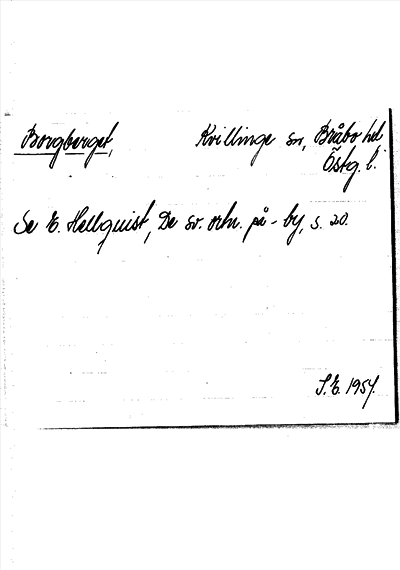 Borgberget, Kvillinge sn, Bråbo hd
Östg. l.
Se E. Hellquist, De sv. ortn. på -by, s. 20.
S.E. 1954.